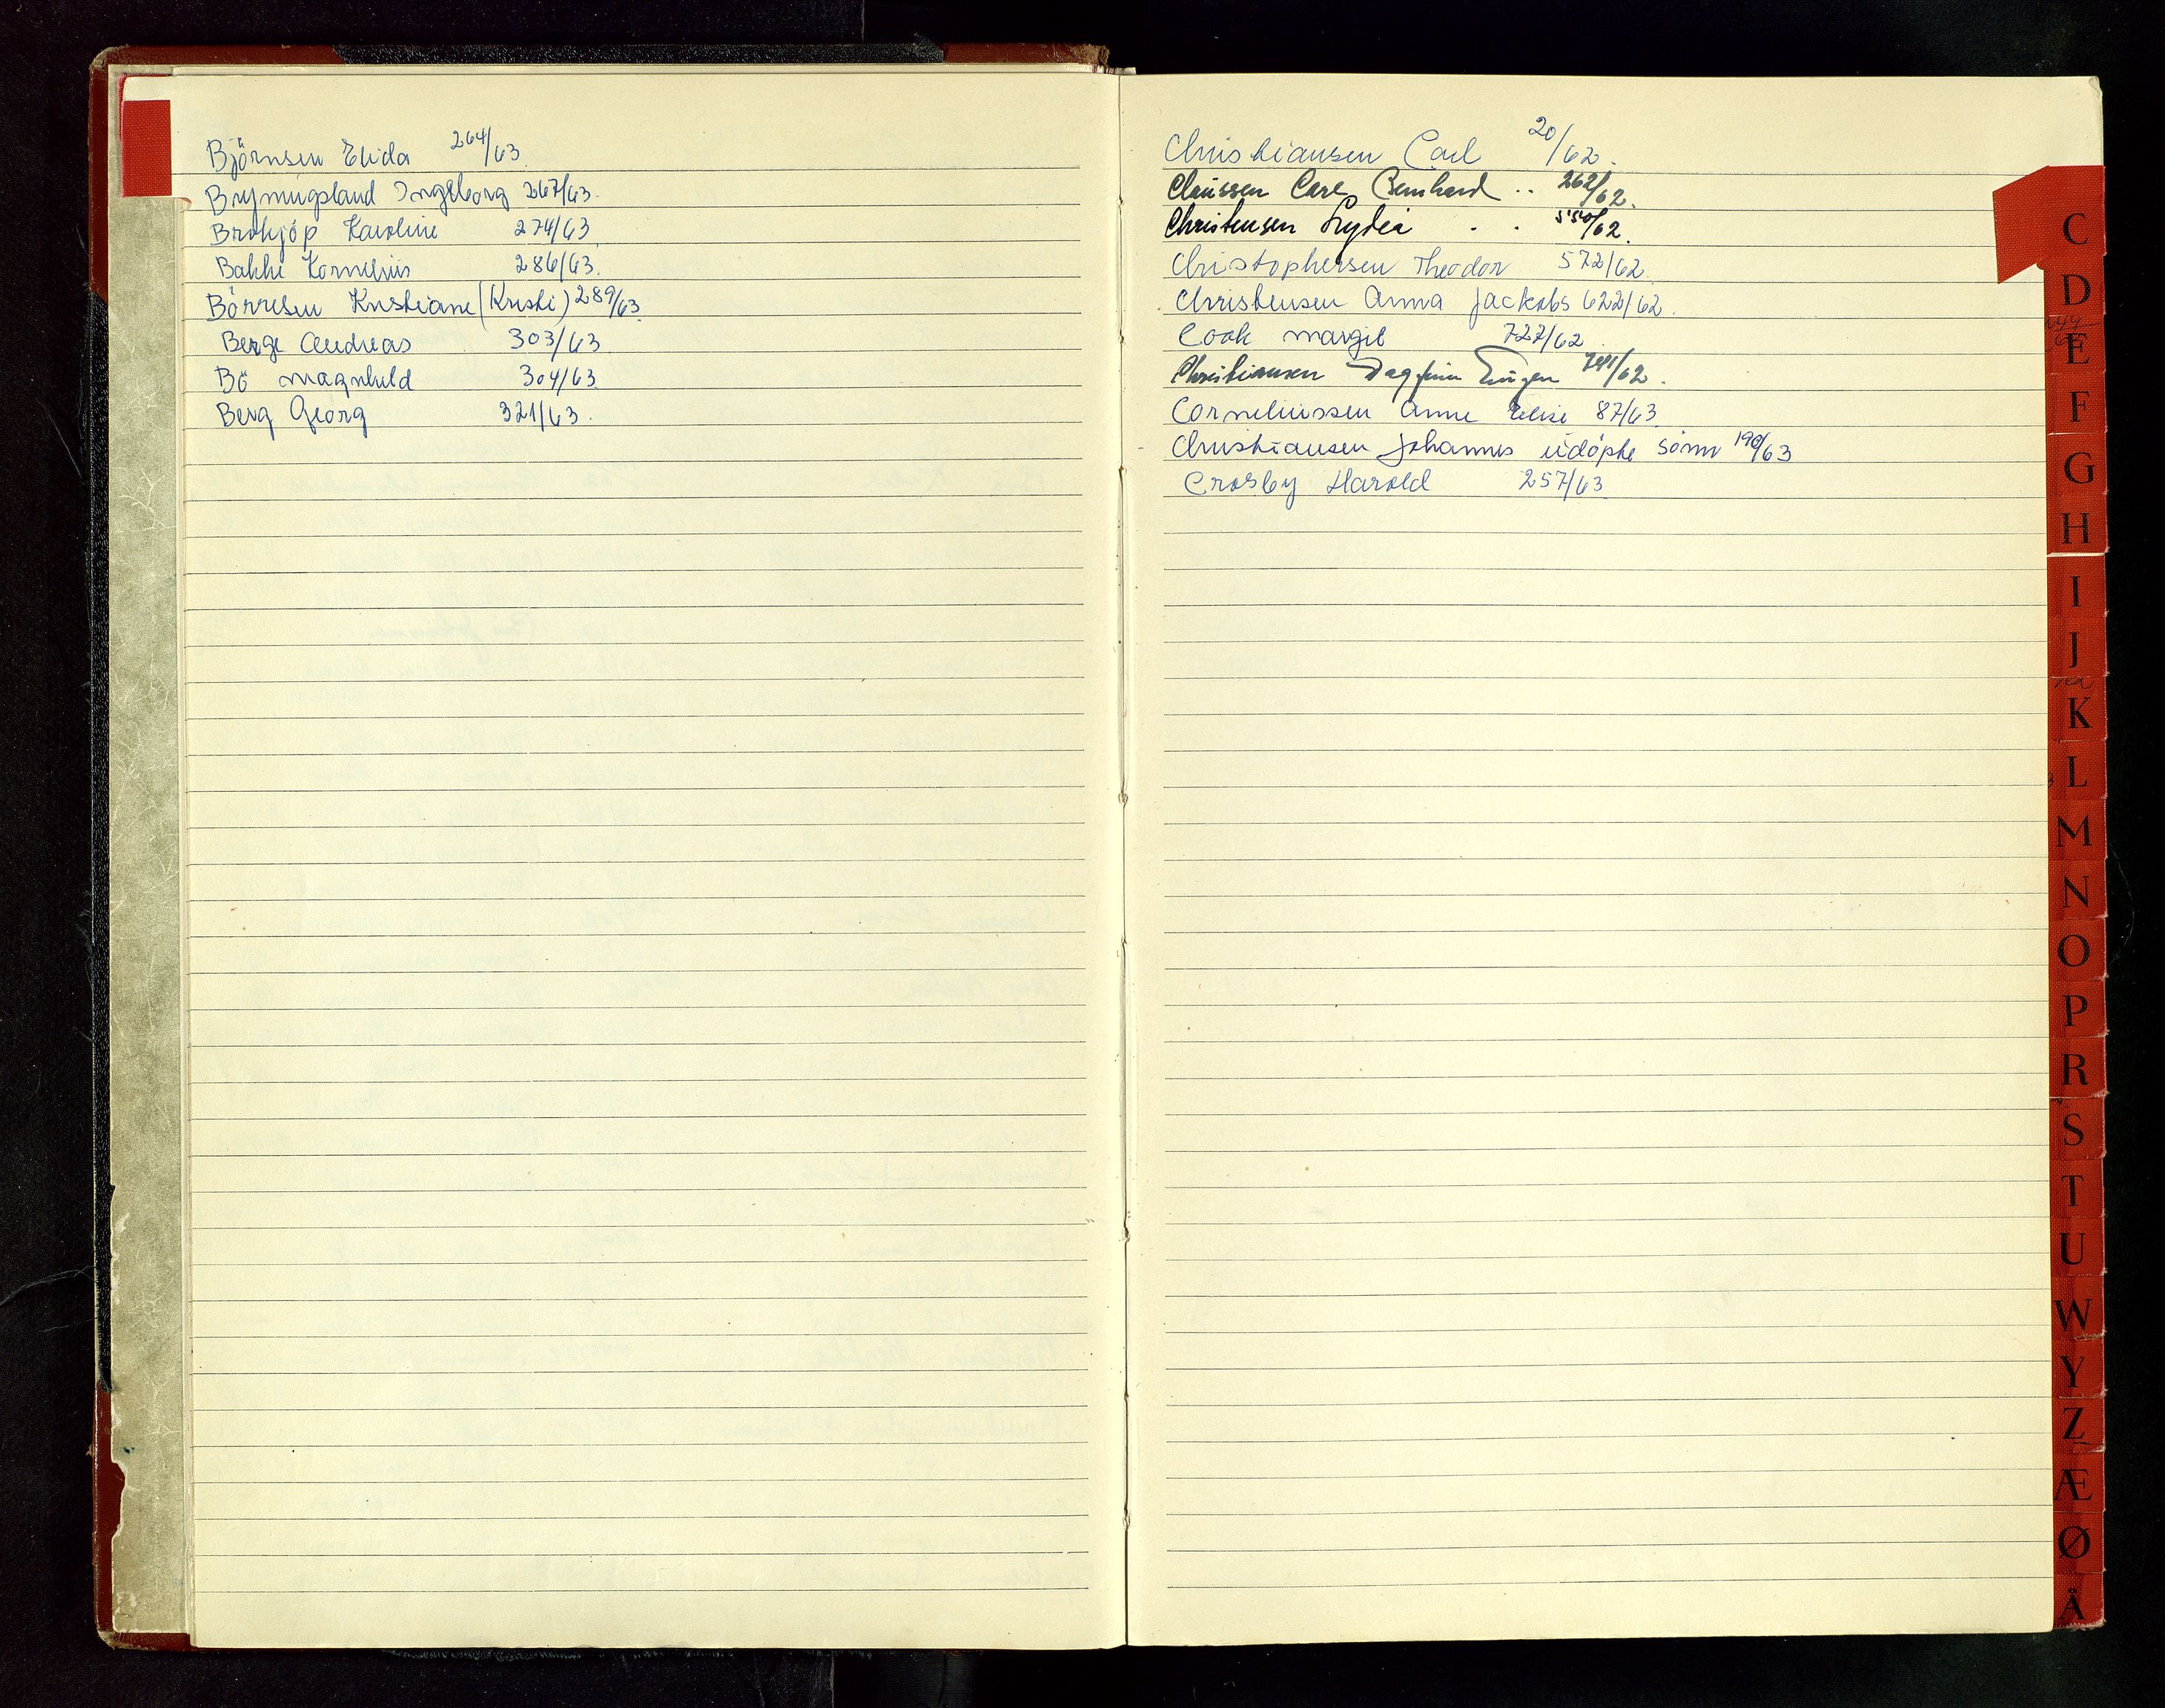 Björnsen Elida 264/63
Bryningsland Ingeborg 267/63.
Brokjöp Karoline 274/63
Bakke Kornelius 286/63.
Börresen Kristiane (Kristi) 289/63
Berge Andreas 303/63
Bö Magnhild 304/63
Berg Georg 321/63.
Christiansen Carl 20/62.
Claussen Carl Bernhard .. 262/62.
Christensen Lydia . . 550/62.
Christophersen Theodor 572/62.
Christensen Anna Jackobs 622/62.
Cook Margit 727/62.
Christiansen Dagfinn Eugen 741/62.
Corneliussen Anne Elise 87/63
Christiansen Johannes udöpte sönn 190/63
Crosby Harold 257/63
C
D
E
F
G
H
I
J
K
L
M
N
O
P
R
S
T
U
W
Y
Z
Æ
Ø
Å